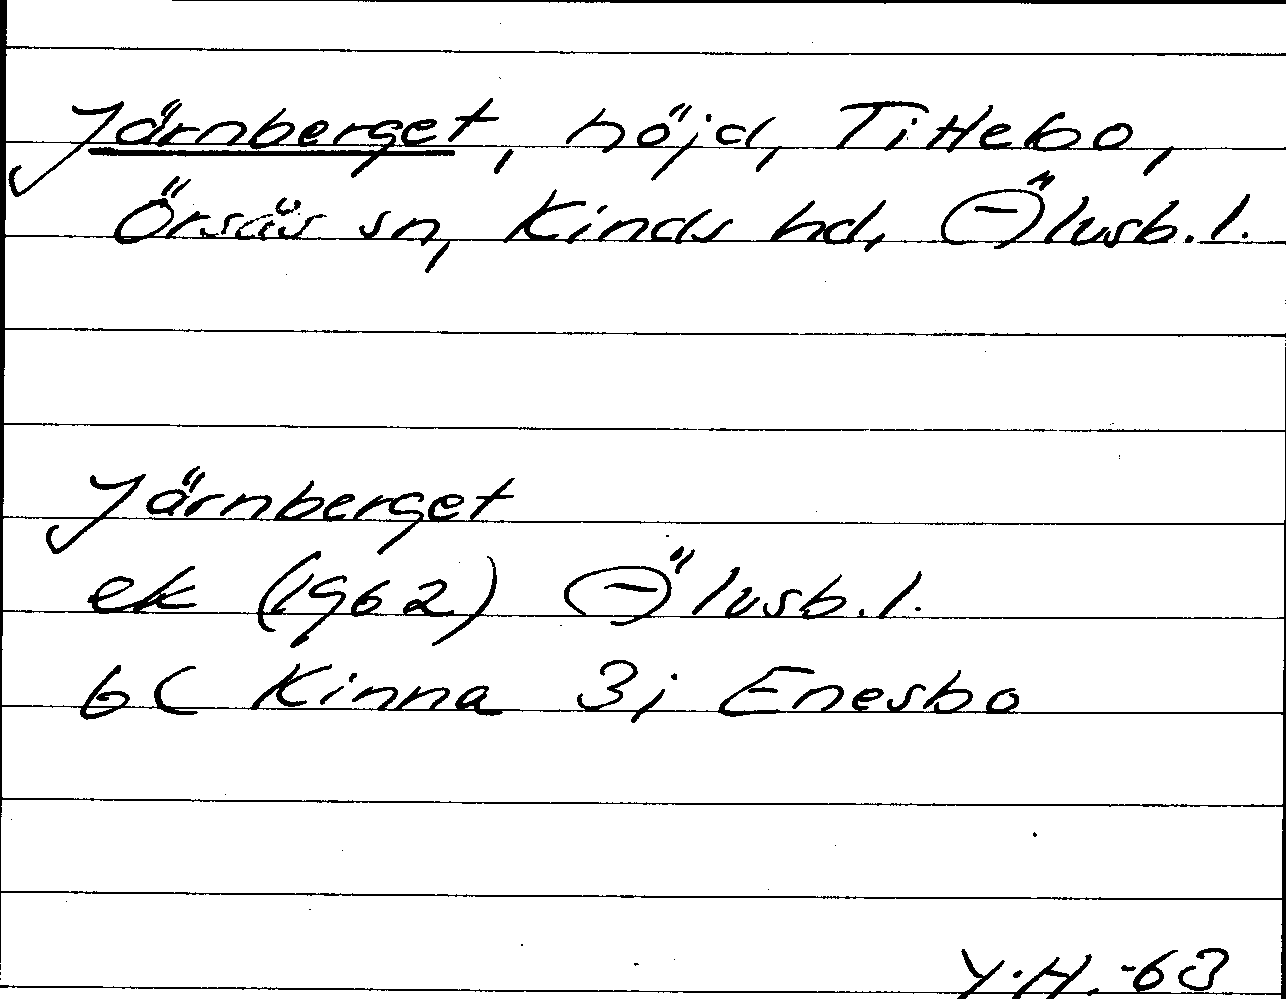 Järnberget, höjd, Tittebo,
Örsås sn, Kinds hd, Älvsb. l.
Järnberget
ek (1962) Älvsb. l.
6C Kinna 3j Enesbo
Y.H. -63